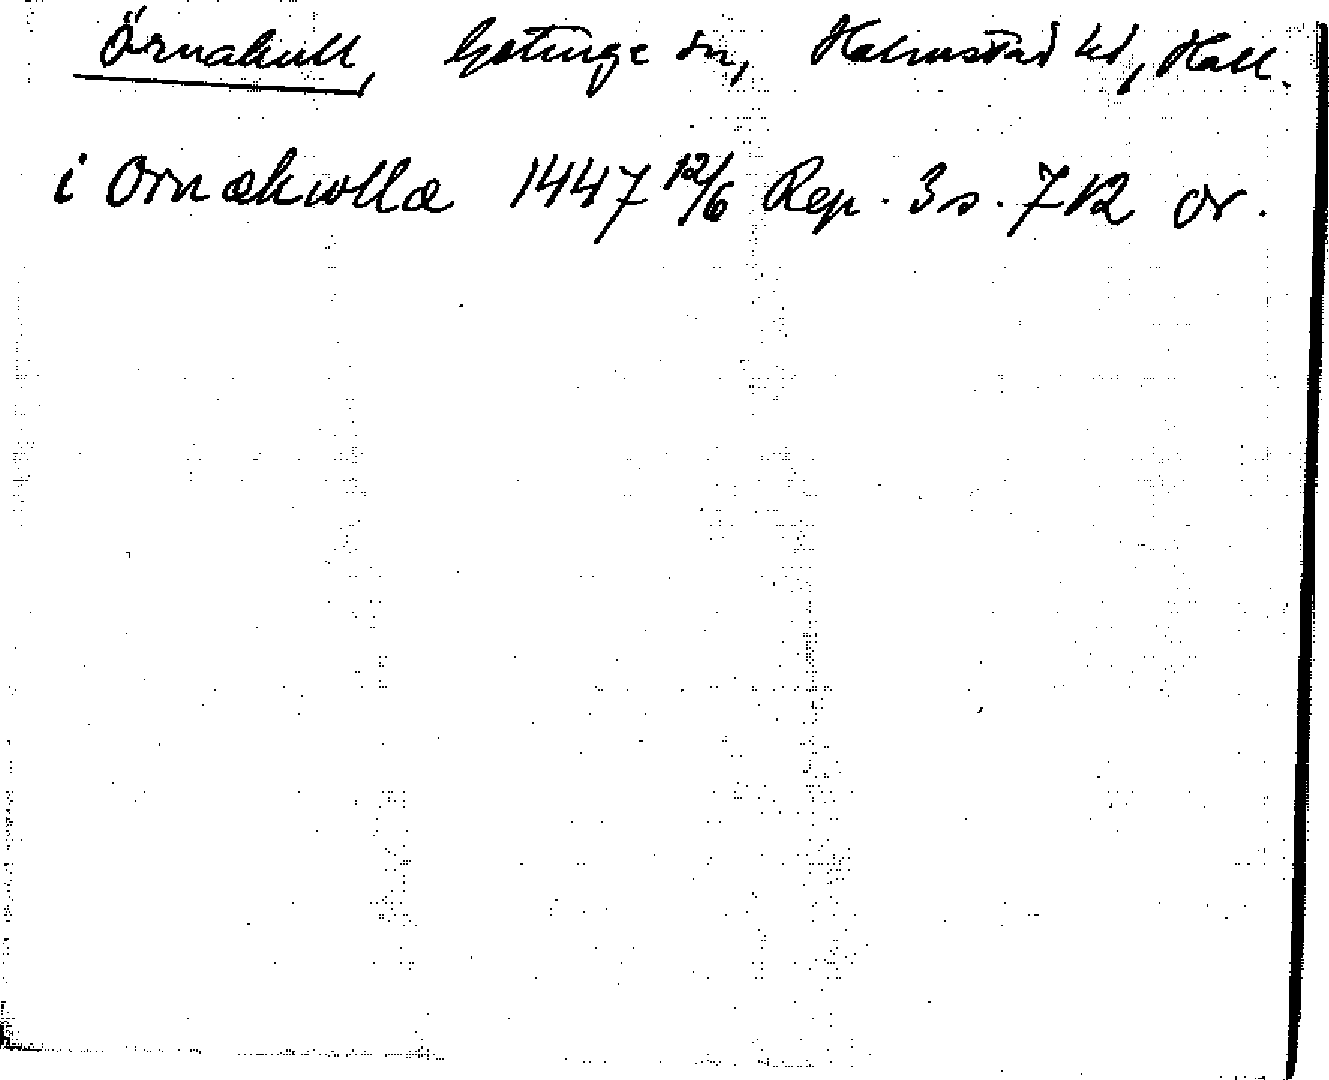 Örnakull, Getinge sn, Halmstad hd, Hall.
i Ornækwllæ 1447 12/6 Rep. 3 s. 712 or.